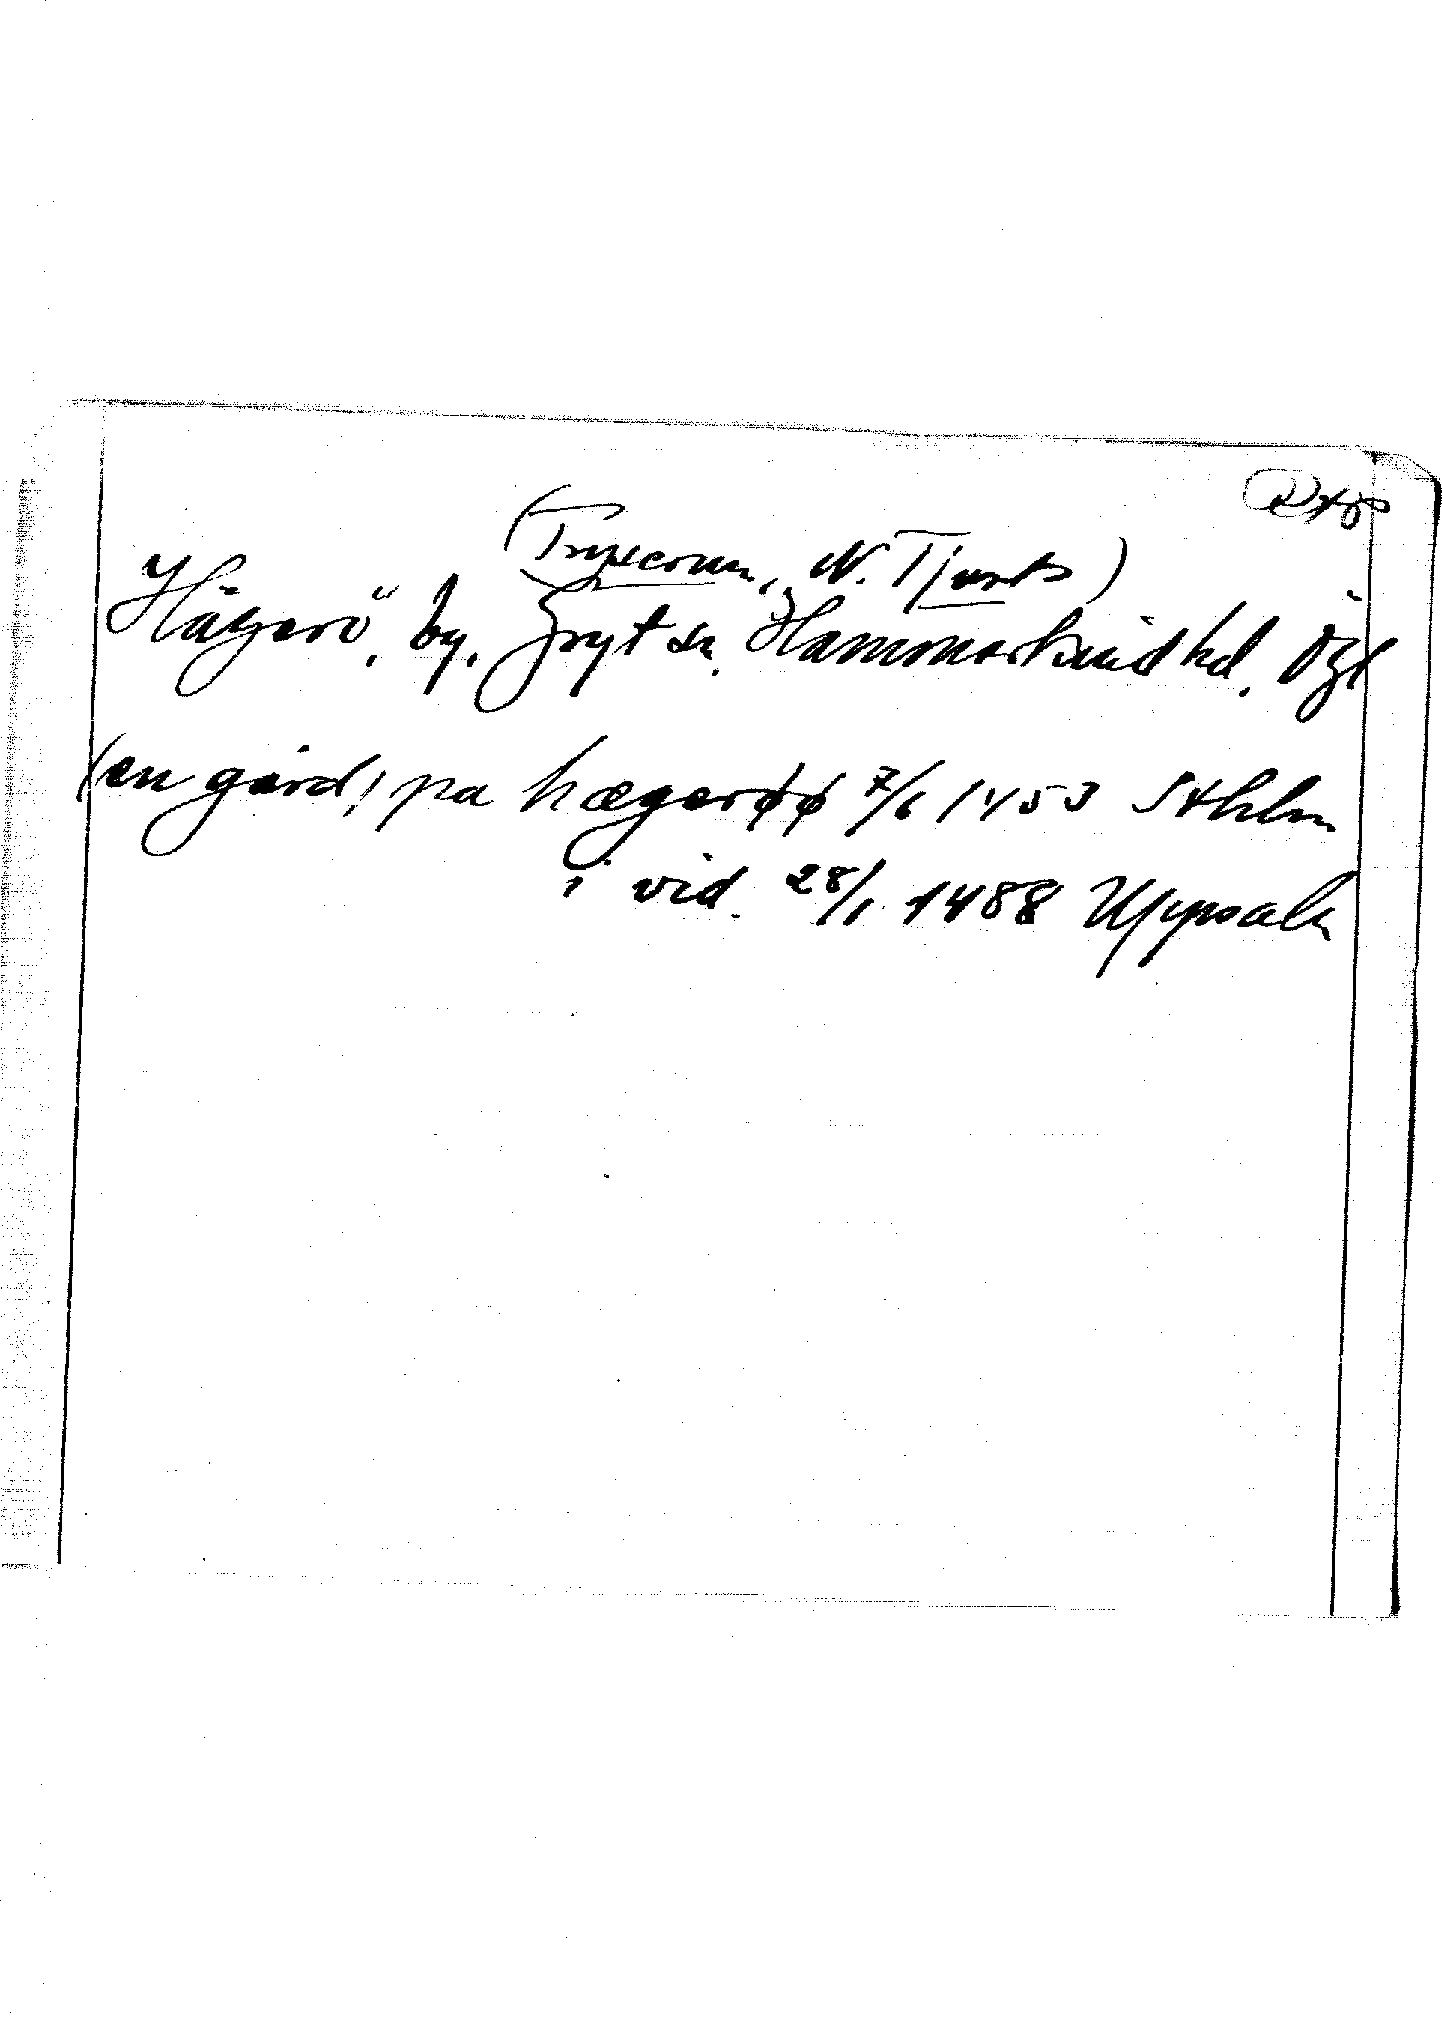 (Tryserum, N. Tjust)
Hägerö, by, Gryt sn, Hammarkind hd, Ögl
(en gård) pa hægerøø 7/6 1453 Sthlm
i vid. 28/1 1488 Uppsala